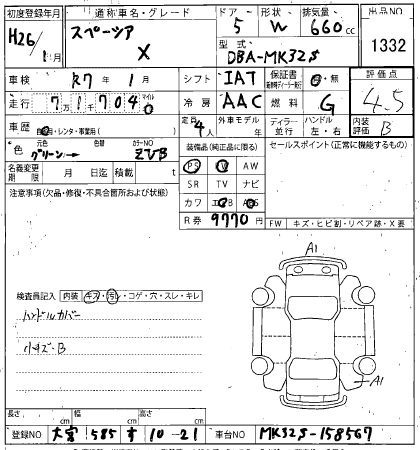 初度登録年月 通称車名・グレード ドア・形状 排気量 出品NO
H26/1月 スペーシア X 5 W 660cc 1332
型式 DBA-MK32S
車検 R7年1月 シフト IAT 保証書 有・無 評価点 4.5
走行 7万1千704 マイル 冷房 AAC 燃料 G
車歴 自家用・レンタ・事業用( ) 定員 4人 外車モデル 年 ディーラー・並行 ハンドル 左・右 内装評価 B
色 元色 グリーン 色替 カラーNO ZVB 装備品(純正品に限る) セールスポイント(正常に機能するもの)
名義変更期限 月 日迄 積載 t PS PW AW
注意事項(欠品・修復・不具合箇所および状態) SR TV ナビ
カワ エアB ABS
R券 9770円
FW キズ・ヒビ割・リペア跡・X要
A1
検査員記入 内装 キズ・汚れ・コゲ・穴・スレ・キレ
ハンドルカバー
小キズ・B
A1
長さ cm 幅 cm 高さ cm
登録NO 大宮 585 す 10-21 車台NO MK32S-158567